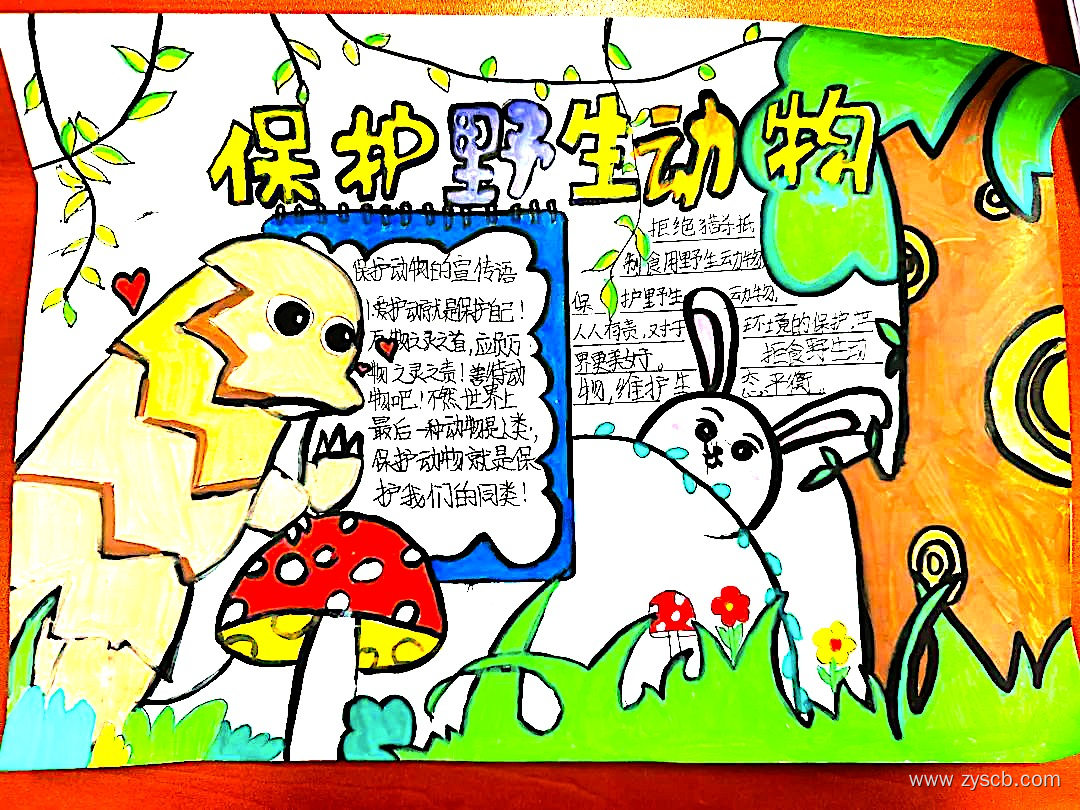 保护野生动物
保护动物的宣传语
1.爱护动物就是保护自己!
万物之灵之首,应负万
物之灵之责!善待动
物吧!不然世界上
最后一种动物是人类,
保护动物就是保
护我们的同类!
拒绝猎杀抵
制食用野生动物
保护野生动物,
人人有责,对于环境的保护,
界更美好。拒食野生动
物,维护生态平衡。
www.zyscb.com